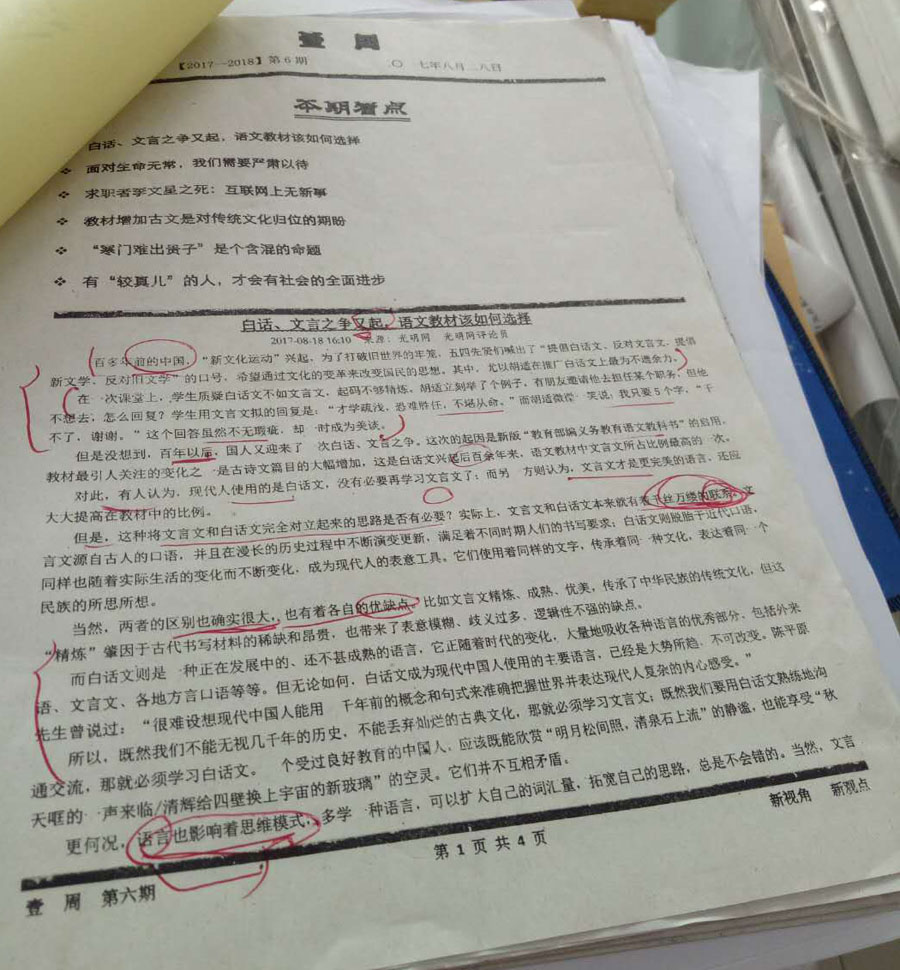 壹 周
【2017--2018】第 6 期
〇 七年八月二八日
本期看点
白话、文言之争又起，语文教材该如何选择
❖ 面对生命无常，我们需要严肃以待
❖ 求职者李文星之死：互联网上无新事
❖ 教材增加古文是对传统文化归位的期盼
❖ “寒门难出贵子”是个含混的命题
❖ 有“较真儿”的人，才会有社会的全面进步
白话、文言之争又起，语文教材该如何选择
2017-08-18 16:10 来源：光明网 光明网评论员
百多年前的中国，“新文化运动”兴起，为了打破旧世界的牢笼，五四先贤们喊出了“提倡白话文、反对文言文，提倡
新文学、反对旧文学”的口号，希望通过文化的变革来改变国民的思想。其中，尤以胡适在推广白话文上最为不遗余力。
在 次课堂上，学生质疑白话文不如文言文，起码不够精炼。胡适立刻举了个例子，有朋友邀请他去担任某个职务，但他
不想去，怎么回复？学生用文言文拟的回复是：“才学疏浅，恐难胜任，不堪从命。”而胡适微微 笑说：我只要 5 个字，“干
不了，谢谢。”这个回答虽然不无瑕疵，却 时成为美谈。
但是没想到，百年以后，国人又迎来了 次白话、文言之争。这次的起因是新版“教育部编义务教育语文教科书”的启用，
教材最引人关注的变化之 是古诗文篇目的大幅增加，这是白话文兴起后百余年来，语文教材中文言文所占比例最高的 次。
对此，有人认为，现代人使用的是白话文，没有必要再学习文言文了；而另 方则认为，文言文才是更完美的语言，还应
大大提高在教材中的比例。
但是，这种将文言文和白话文完全对立起来的思路是否有必要？实际上，文言文和白话文本来就有着千丝万缕的联系。文
言文源自古人的口语，并且在漫长的历史过程中不断演变更新，满足着不同时期人们的书写要求；白话文则脱胎于近代口语，
同样也随着实际生活的变化而不断变化，成为现代人的表意工具。它们使用着同样的文字，传承着同 种文化，表达着同一个
民族的所思所想。
当然，两者的区别也确实很大，也有着各自的优缺点。比如文言文精炼、成熟、优美，传承了中华民族的传统文化，但这
“精炼”肇因于古代书写材料的稀缺和昂贵，也带来了表意模糊、歧义过多、逻辑性不强的缺点。
而白话文则是 种正在发展中的、还不甚成熟的语言，它正随着时代的变化，大量地吸收各种语言的优秀部分，包括外来
语、文言文、各地方言口语等等。但无论如何，白话文成为现代中国人使用的主要语言，已经是大势所趋、不可改变。陈平原
先生曾说过：“很难设想现代中国人能用 千年前的概念和句式来准确把握世界并表达现代人复杂的内心感受。”
所以，既然我们不能无视几千年的历史，不能丢弃灿烂的古典文化，那就必须学习文言文；既然我们要用白话文熟练地沟
通交流，那就必须学习白话文。 个受过良好教育的中国人，应该既能欣赏“明月松间照，清泉石上流”的静谧，也能享受“秋
天哐的 声来临/清辉给四壁换上宇宙的新玻璃”的空灵。它们并不互相矛盾。
更何况，语言也影响着思维模式，多学 种语言，可以扩大自己的词汇量，拓宽自己的思路，总是不会错的。当然，文言
壹 周 第六期
第 1 页 共 4 页
新视角 新观点